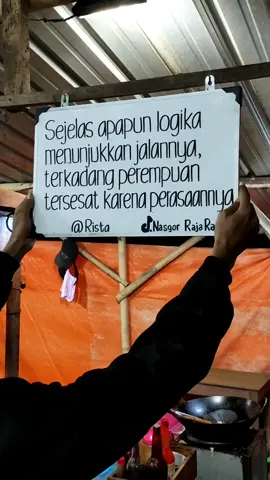 Sejelas apapun logika
menunjukkan jalannya,
terkadang perempuan
tersesat karena perasaannya
@Rista Nasgor Raja Ra